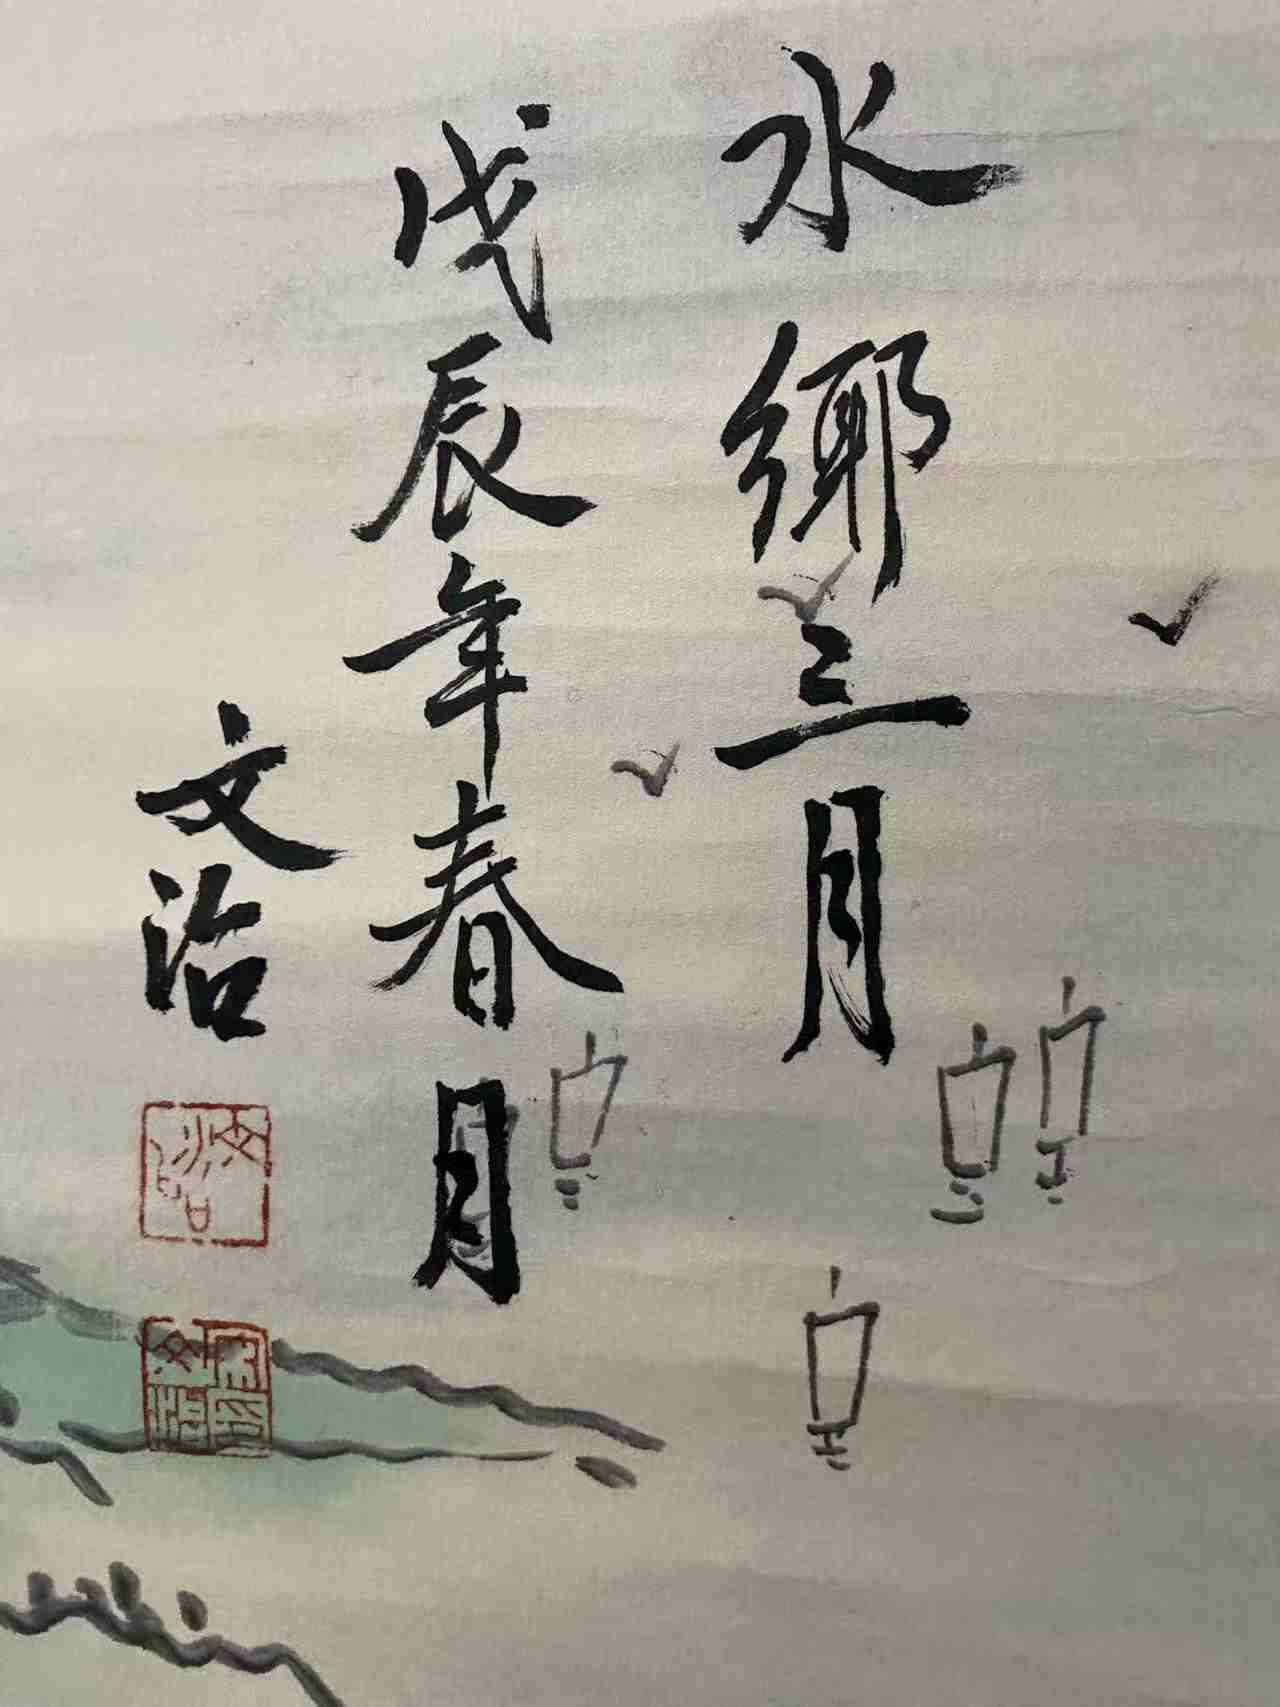 水鄉三月
戊辰年春月
文治
文治